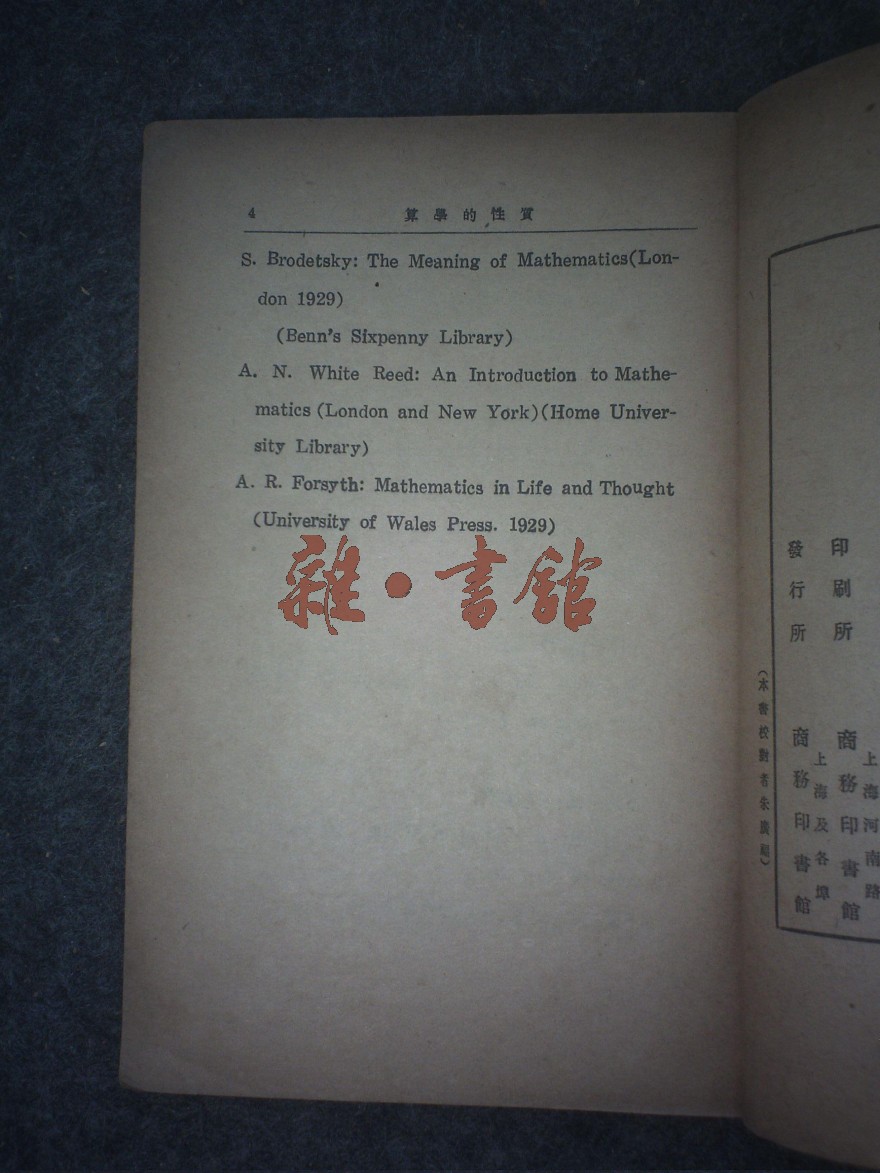 4 算學的性質
S. Brodetsky: The Meaning of Mathematics(Lon-
don 1929)
(Benn's Sixpenny Library)
A. N. White Reed: An Introduction to Mathe-
matics (London and New York)(Home Univer-
sity Library)
A. R. Forsyth: Mathematics in Life and Thought
(University of Wales Press. 1929)
雜·書館
印刷所
發行所
上海河南路
商務印書館
上海及各埠
商務印書館
(本書校對者朱